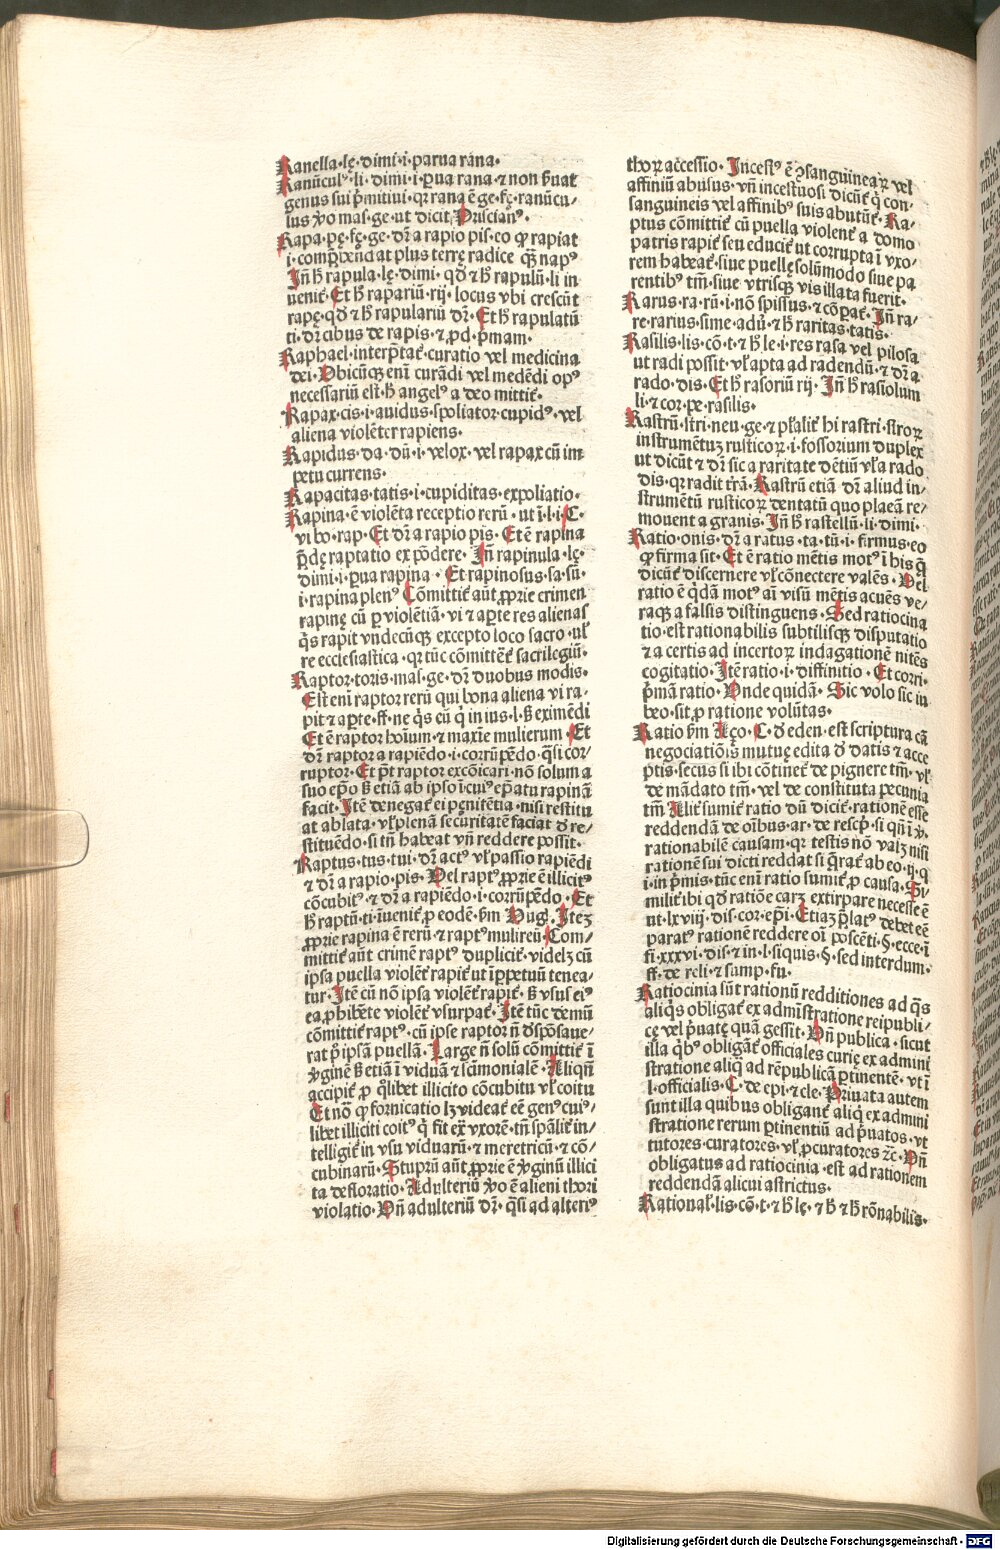 Ranella·lę·dimi·i·parua rana·
Ranūculꝰ·li·dimi·i·ꝑua rana·⁊ non ẜuat
genus sui p̄mitiui·qꝛ rana ē ge·fę·ranūcu/
lus ꝟo mas·ge·ut dicit Priscianꝰ·
Rapa·pę·fę·ge·dr̄ a rapio pis·eo ꝙ rapiat
i·comp̄hendat plus terrę radice q̄ꝫ napꝰ
Jn̄ h̄ rapula·lę·dimi·qd̄ ⁊ h̄ rapulū·li in
uenit᷑·Et h̄ rapariū·rij·locus vbi crescūt
rapę·qd̄ ⁊ h̄ rapulariū dr̄·Et h̄ rapulatū
ti·dr̄ cibus de rapis·⁊ ꝓd·p̄mam·
Raphael·interp̄tat᷑·curatio vel medicina
dei·Vbicūqꝫ eni curādi vel medēdi opꝰ
necessariū est·h̄ angelꝰ a deo mittit᷑·
Rapax·cis·i·auidus·spoliator·cupidꝰ·vel
aliena violēter rapiens·
Rapidus·da·dū·i·velox·vel rapax cū im
petu currens·
Rapacitas·tatis·i·cupiditas·expoliatio·
Rapina·ē violēta receptio rerū·ut ī·l·i·C·
vi bo·rap·Et dr̄ a rapio pis·Et ē rapina
p̄dę raptatio ex pōdere·Jn̄ rapinula·lę·
dimi·i·ꝑua rapina·Et rapinosus·sa·sū·
i·rapina plenꝰ Cōmittit᷑ aūt ꝓprie crimen
rapinę cū ꝑ violētiā·vi ⁊ aꝑte res alienas
q̄s rapit vndecūqꝫ excepto loco sacro·uł
re ecclesiastica·qꝛ tūc cōmittet᷑ sacrilegiū·
Raptor·toris·mas·ge·dr̄ duobus modis·
Est eni raptor rerū qui bona aliena vi ra/
pit ⁊ aꝑte·ff·ne q̄s cū q̄ in ius·l·ẜ eximēdi
Et ē raptor hoīum ⁊ maxīe mulierum·Et
dr̄ raptor a rapiēdo·i·corrūpēdo·q̄si cor/
ruptor·Et p̄t raptor excōicari·nō solum a
suo ep̄o ẜ etiā ab ipso ī cuiꝰ ep̄atu rapinā
facit·Jtē denegat᷑ ei pęnitētia·nisi restitu
at ablata·vł plenā securitatē faciat d̄ re/
stituēdo·si tn̄ habeat vn̄ reddere possit·
Raptus·tus·tui·dr̄ actꝰ vł passio rapiēdi
⁊ dr̄ a rapio·pis·Vel raptꝰ ꝓprie ē illicitꝰ
cōcubitꝰ·⁊ dr̄ a rapiēdo·i·corrūpēdo·Et
h̄ raptū·ti·īuenit᷑ ꝓ eodē·ẜm Hug·Jteꝫ
ꝓprie rapina ē rerū·⁊ raptꝰ mulierū·Com/
mittit᷑ aūt crimē raptꝰ duplicit᷑·videlꝫ cū
ipsa puella violēt᷑ rapit᷑ ut īꝑpetuū tenea/
tur·Jtē cū nō ipsa violēt᷑ rapit᷑·ẜ vsus eiꝰ
ea ꝓhibēte violēt᷑ vsurpat᷑·Jtē tūc demū
cōmittit᷑ raptꝰ·cū ipse raptor n̄ dn̄sponsaue/
rat p̄ ipsā puellā·Large n̄ solū cōmittit᷑ ī
ꝟginē ẜ etiā ī viduā ⁊ sctimonialē·Aliqn̄
accipit᷑ ꝓ q̄libet illicito cōcubitu vł coitu
Et no ꝙ fornicatio lꝫ videat᷑ eē genꝰ cuiꝰ/
libet illiciti coitꝰ q̄ fit ex vxorē·tn̄ sp̄alit᷑ in/
telligit᷑ in vsu viduarū ⁊ meretricū ⁊ cō/
cubinarū·Stuprū aūt ꝓprie ē ꝟginū illici
ta defloratio·Adulteriū ꝟo ē alieni thori
violatio·Vn̄ adulteriū dr̄·q̄si ad alterꝰ
thoꝝ accessio·Jncestꝰ ē ꝯsanguineaꝝ vel
affiniū abusus·vn̄ incestuosi dicūt᷑ q̄ con/
sanguineis vel affinibꝰ suis abutūt᷑·Ra/
ptus cōmittit᷑ cū puella violent᷑ a domo
patris rapit᷑ seu educit᷑ ut corrupta ī vxo/
rem habeat᷑·siue puellę solūmodo siue pa
rentibꝰ tm̄·siue vtrisqꝫ vis illata fuerit·
Rarus·ra·rū·i·nō spissus·⁊ cōꝑat᷑·Jn̄ ra/
re·rarius·sime·adū·⁊ h̄ raritas·tatis·
Rasilis·lis·cō·t·⁊ h̄ le·i·res rasa vel pilosa
ut radi possit·vł apta ad radendū·⁊ dr̄ a
rado·dis·Et h̄ rasoriū rij·Jn̄ h̄ rasiolum
li·⁊ cor·pe·rasilis·
Rastrū·stri·neu·ge·⁊ pl̄alit᷑ hi rastri·stroꝝ
instrumētuꝫ rusticoꝝ·i·fossorium duplex
ut dicūt ⁊ dr̄ sic a raritate dētiū vł a rado
dis·qꝛ radit tr̄ā·Rastrū etiā dr̄ aliud in/
strumētū rusticoꝝ dentatū quo plaeam re/
mouent a granis·Jn̄ h̄ rastellū·li·dimi·
Ratio·onis·dr̄ a ratus·ta·tū·i·firmus·eo
ꝙ firma sit·Et ē ratio mētis motꝰ ī his q̄
dicūt᷑ discernere vł cōnectere valēs·Vel
ratio ē q̄dā motꝰ aī visū mētis acuēs ve/
raqꝫ a falsis distinguens·Sed ratiocina
tio·est rationabilis subtilisqꝫ disputatio
⁊ a certis ad incertoꝝ indagationē nitēs
cogitatio·Jtē ratio·i·diffinitio·Et corri·
p̄mā ratio·Vnde quidā·Sic volo sic iu
beo·sit ꝓ ratione volūtas·
Ratio ẜm Aço·C·d̄ eden·est scriptura cā
negociatiōis mutuę edita d̄ datis ⁊ acce
ptis·secus si ibi cōtinet᷑ de pignere tm̄·vł
de mādato tm̄·vel de constituta pecunia
tm̄ Alit᷑ sumit᷑ ratio dū dicit᷑·rationē esse
reddendā de oībus·ar·de rescp̄·si qn̄ ī ꝟ·
rationabilē causam·qꝛ testis nō valꝫ nisi
rationē sui dicti reddat si q̄rat᷑ ab eo·ij·q·
i·in p̄mis·tūc eni ratio sumit᷑ ꝓ causa·Si
milit᷑ ibi qd̄ ratiōe carꝫ extirpare necesse ē
ut·lxviij·dis·cor·ep̄i·Etiaꝫ p̄latꝰ debet eē
paratꝰ rationē reddere oī poscēti·§·ecce·ī
fi·xxxvi·dis·⁊ in·l·siquis·§·sed interdum·
ff·de reli·⁊ sump·fu·
Ratiocinia sūt rationū redditiones ad q̄s
aliq̄s obligat᷑ ex adm̄istratione reipubli/
cę vel p̄uatę quā gessit·Vn̄ publica·sicut
illa q̄bꝰ obligāt᷑ officiales curię ex admini
stratione aliq̄ ad rēpublicā ꝑtinentē·vt ī
l·officialis·C·de epi·⁊ cle·Priuata autem
sunt illa quibus obligant᷑ aliq̄ ex admini
stratione rerum ꝑtinentiū ad p̄uatos·vt
tutores·curatores·vł ꝓcuratores ⁊c̄·Vn̄
obligatus ad ratiocinia·est ad rationem
reddendam alicui astrictus·
Rational᷑·lis·cō·t·⁊ h̄ lę·⁊ h̄ ⁊ h̄ rōnabilis·
Digitalisierung gefördert durch die Deutsche Forschungsgemeinschaft · DFG